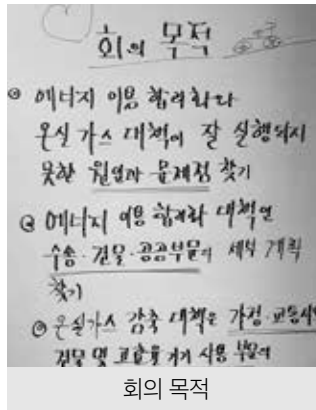 회의 목적
① 에너지 이용 합리화와
온실가스 대책이 잘 실행되지
못한 원인과 문제점 찾기
② 에너지 이용 합리화 대책인
수송·건물·공공부문의 세부 계획
찾기
③ 온실가스 감축 대책은 가정·교통시설
건물 및 고효율 기기 사용 부문의
회의 목적